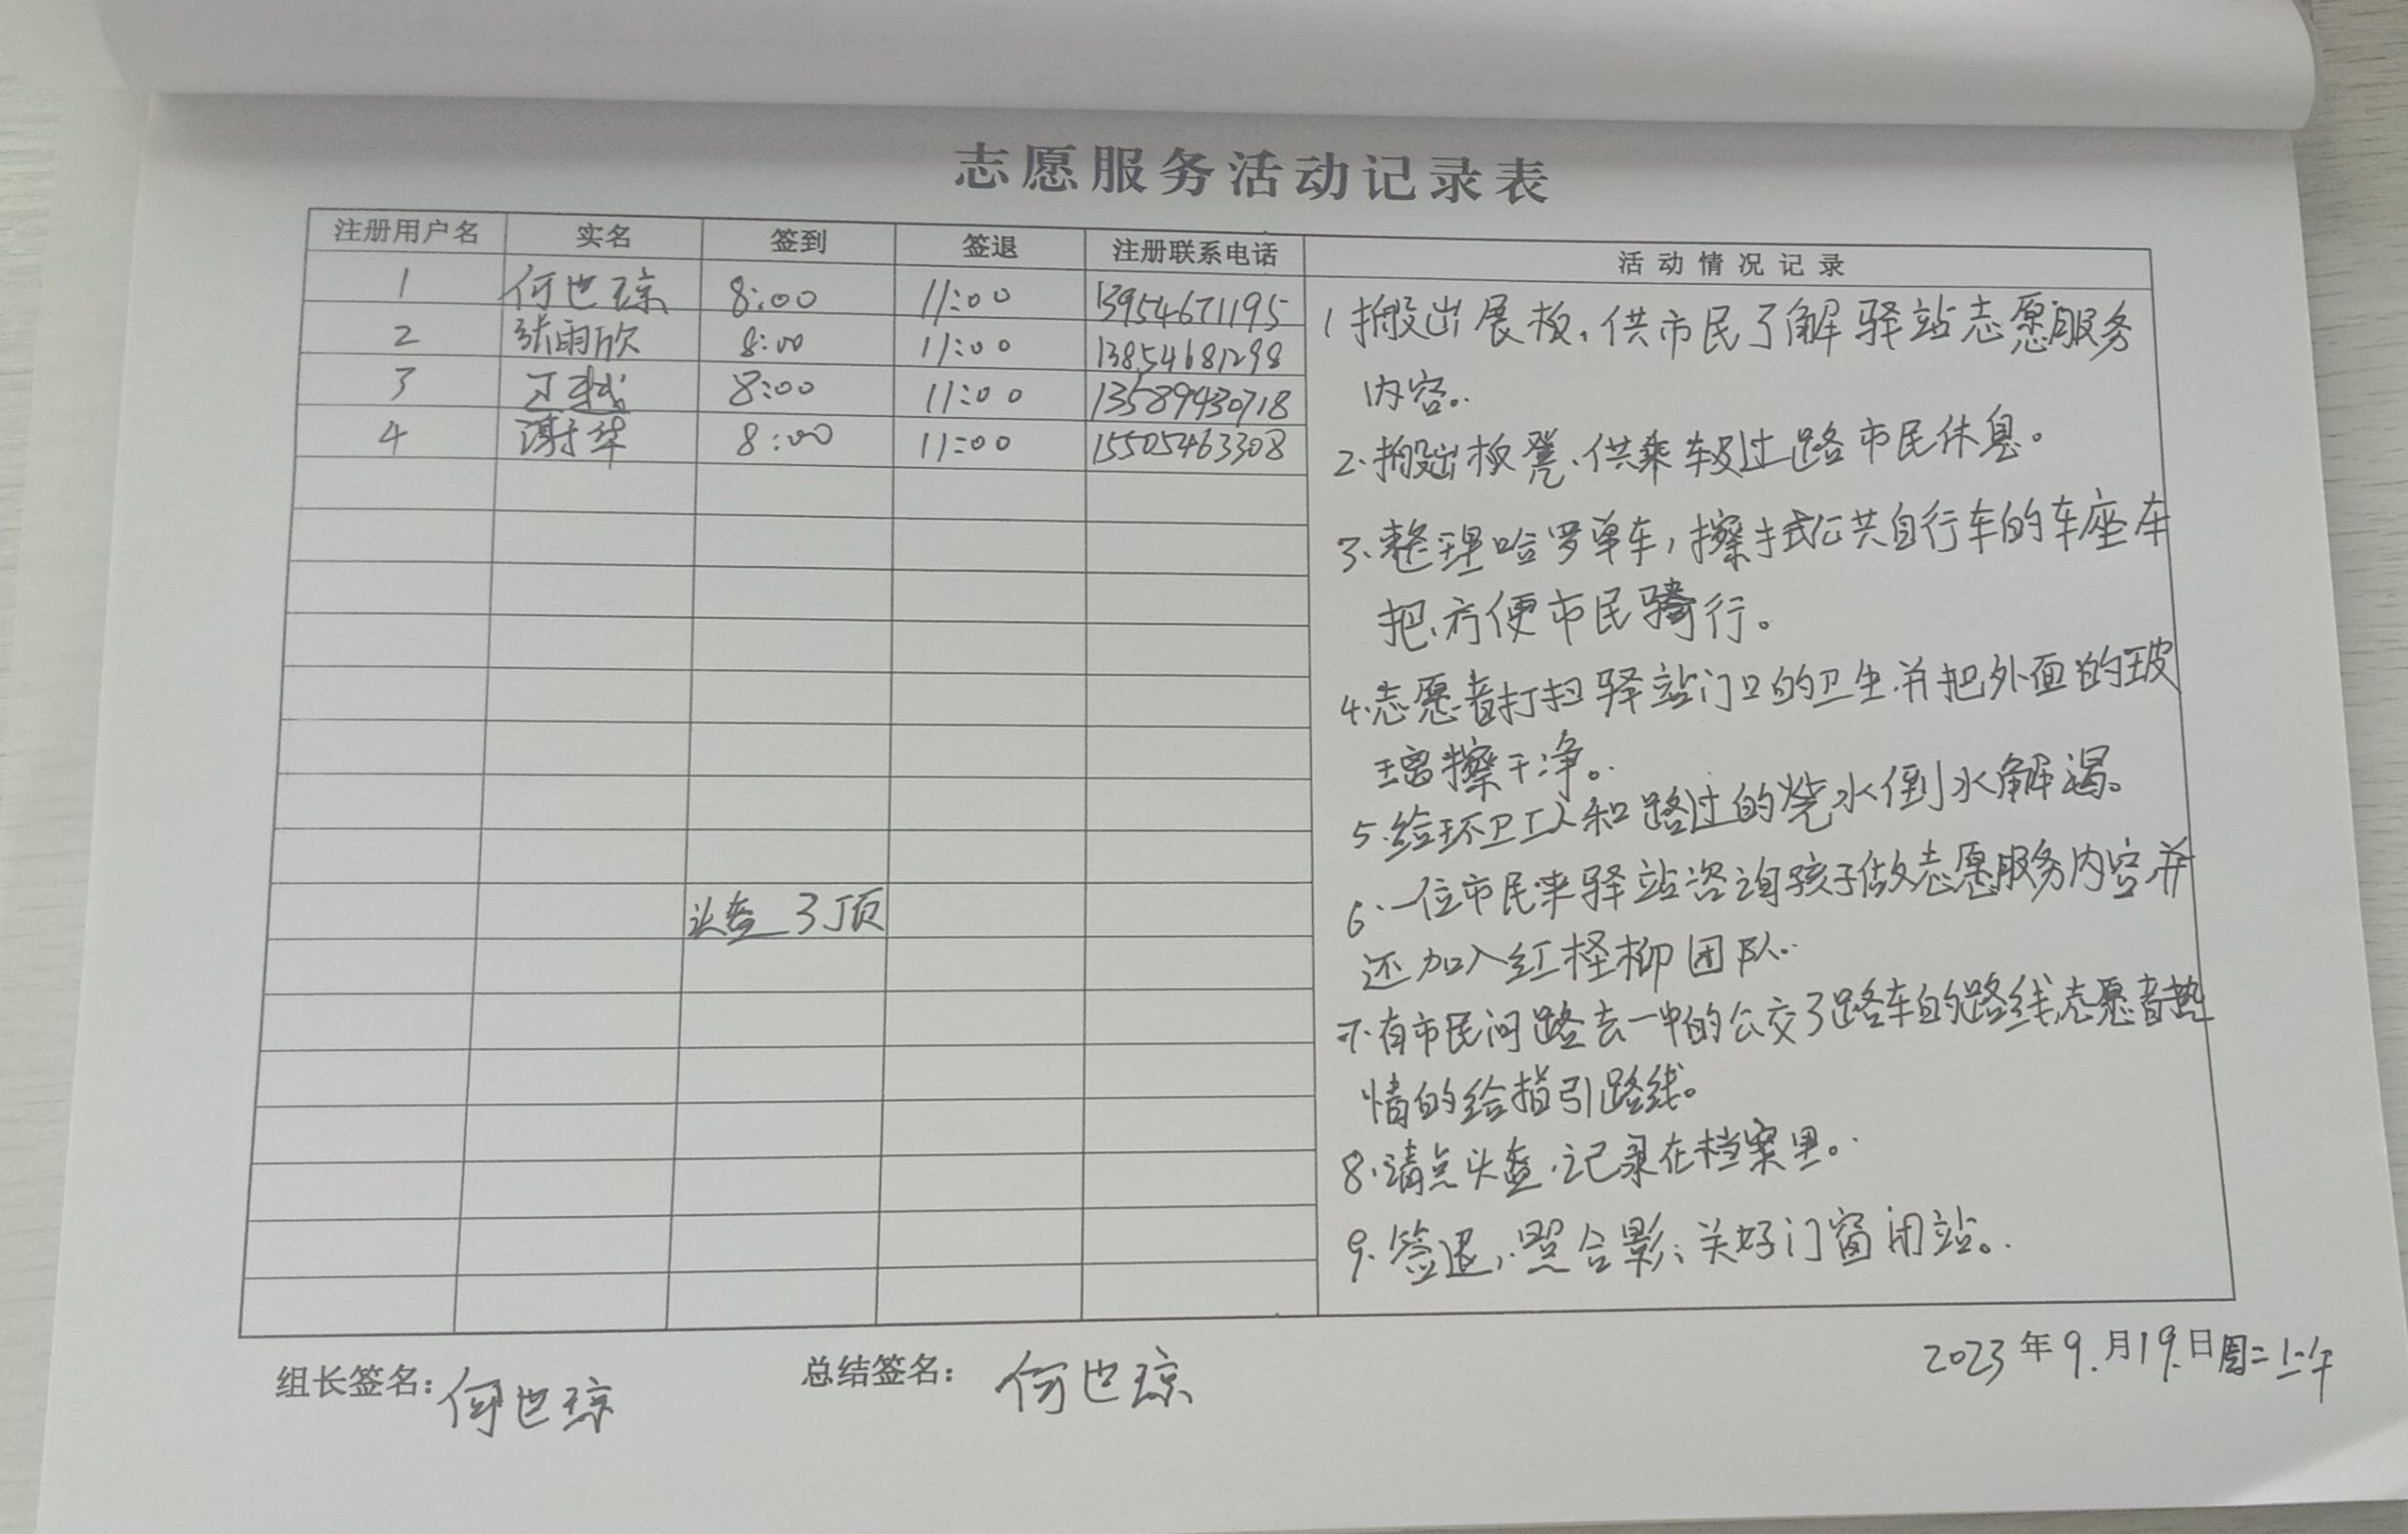 志愿服务活动记录表
注册用户名 实名 签到 签退 注册联系电话 活动情况记录
1 何世琼 8:00 11:00 13954671195
2 张雨欣 8:00 11:00 13854681298
3 8:00 11:00 13589430718
4 谢华 8:00 11:00 15505463308
头盔 3顶
1 搬出展板,供市民了解驿站志愿服务
内容。
2.搬出板凳,供乘车及过路市民休息。
3.整理哈罗单车,擦拭公共自行车的车座车
把,方便市民骑行。
4.志愿者打扫驿站门口的卫生,并把外面的玻
璃擦干净。
5.给环卫工人和路过的烧水倒水解渴。
6.一位市民来驿站咨询孩子做志愿服务内容并
还加入红柽柳团队.
7.有市民问路去一中的公交3路车的路线,志愿者热
情的给指引路线。
8.清点头盔,记录在档案里。
9.签退,照合影,关好门窗闭站。
组长签名:何世琼 总结签名:何世琼 2023年9.月19.日周二上午